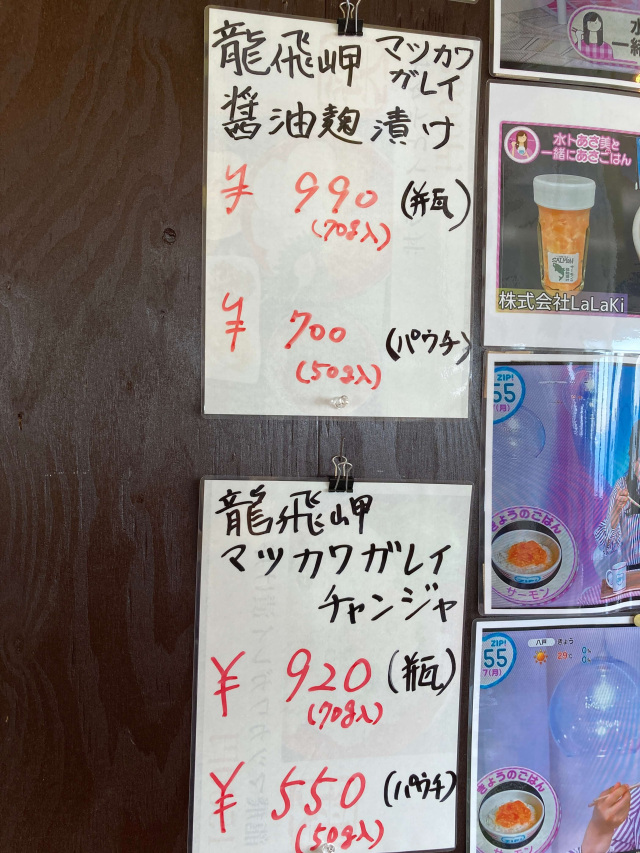 龍飛岬 マツカワ
ガレイ
醤油麹漬け
¥ 990 (瓶)
(70g入)
¥ 700 (パウチ)
(50g入)
龍飛岬
マツカワガレイ
チャンジャ
¥ 920 (瓶)
(70g入)
¥ 550 (パウチ)
(50g入)
水卜あさ美と
一緒にあさごはん
株式会社LaLaKi
ZIP!
55
7(月)
きょうのごはん
サーモン
ZIP!
55
7(月)
八戸 きょう
29℃
きょうのごはん
サーモン